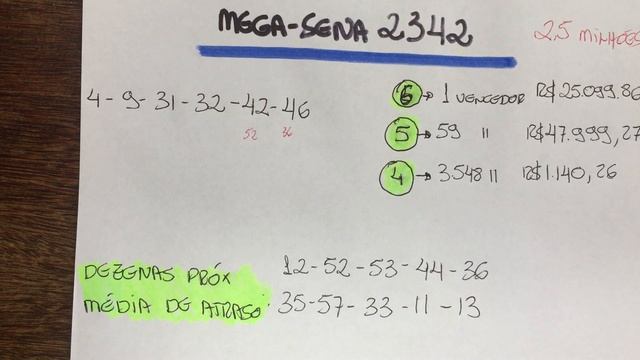 MEGA-SENA 2342
2,5 MINHÕES
4-9-31-32-42-46
52 36
6 → 1 VENCEDOR R$25.099.86
5 → 59 11 R$47.999,27
4 → 3.548 11 R$1.140,26
DEZENAS PRÓX 12-52-53-44-36
MÉDIA DE ATRASO 35-57-33-11-13